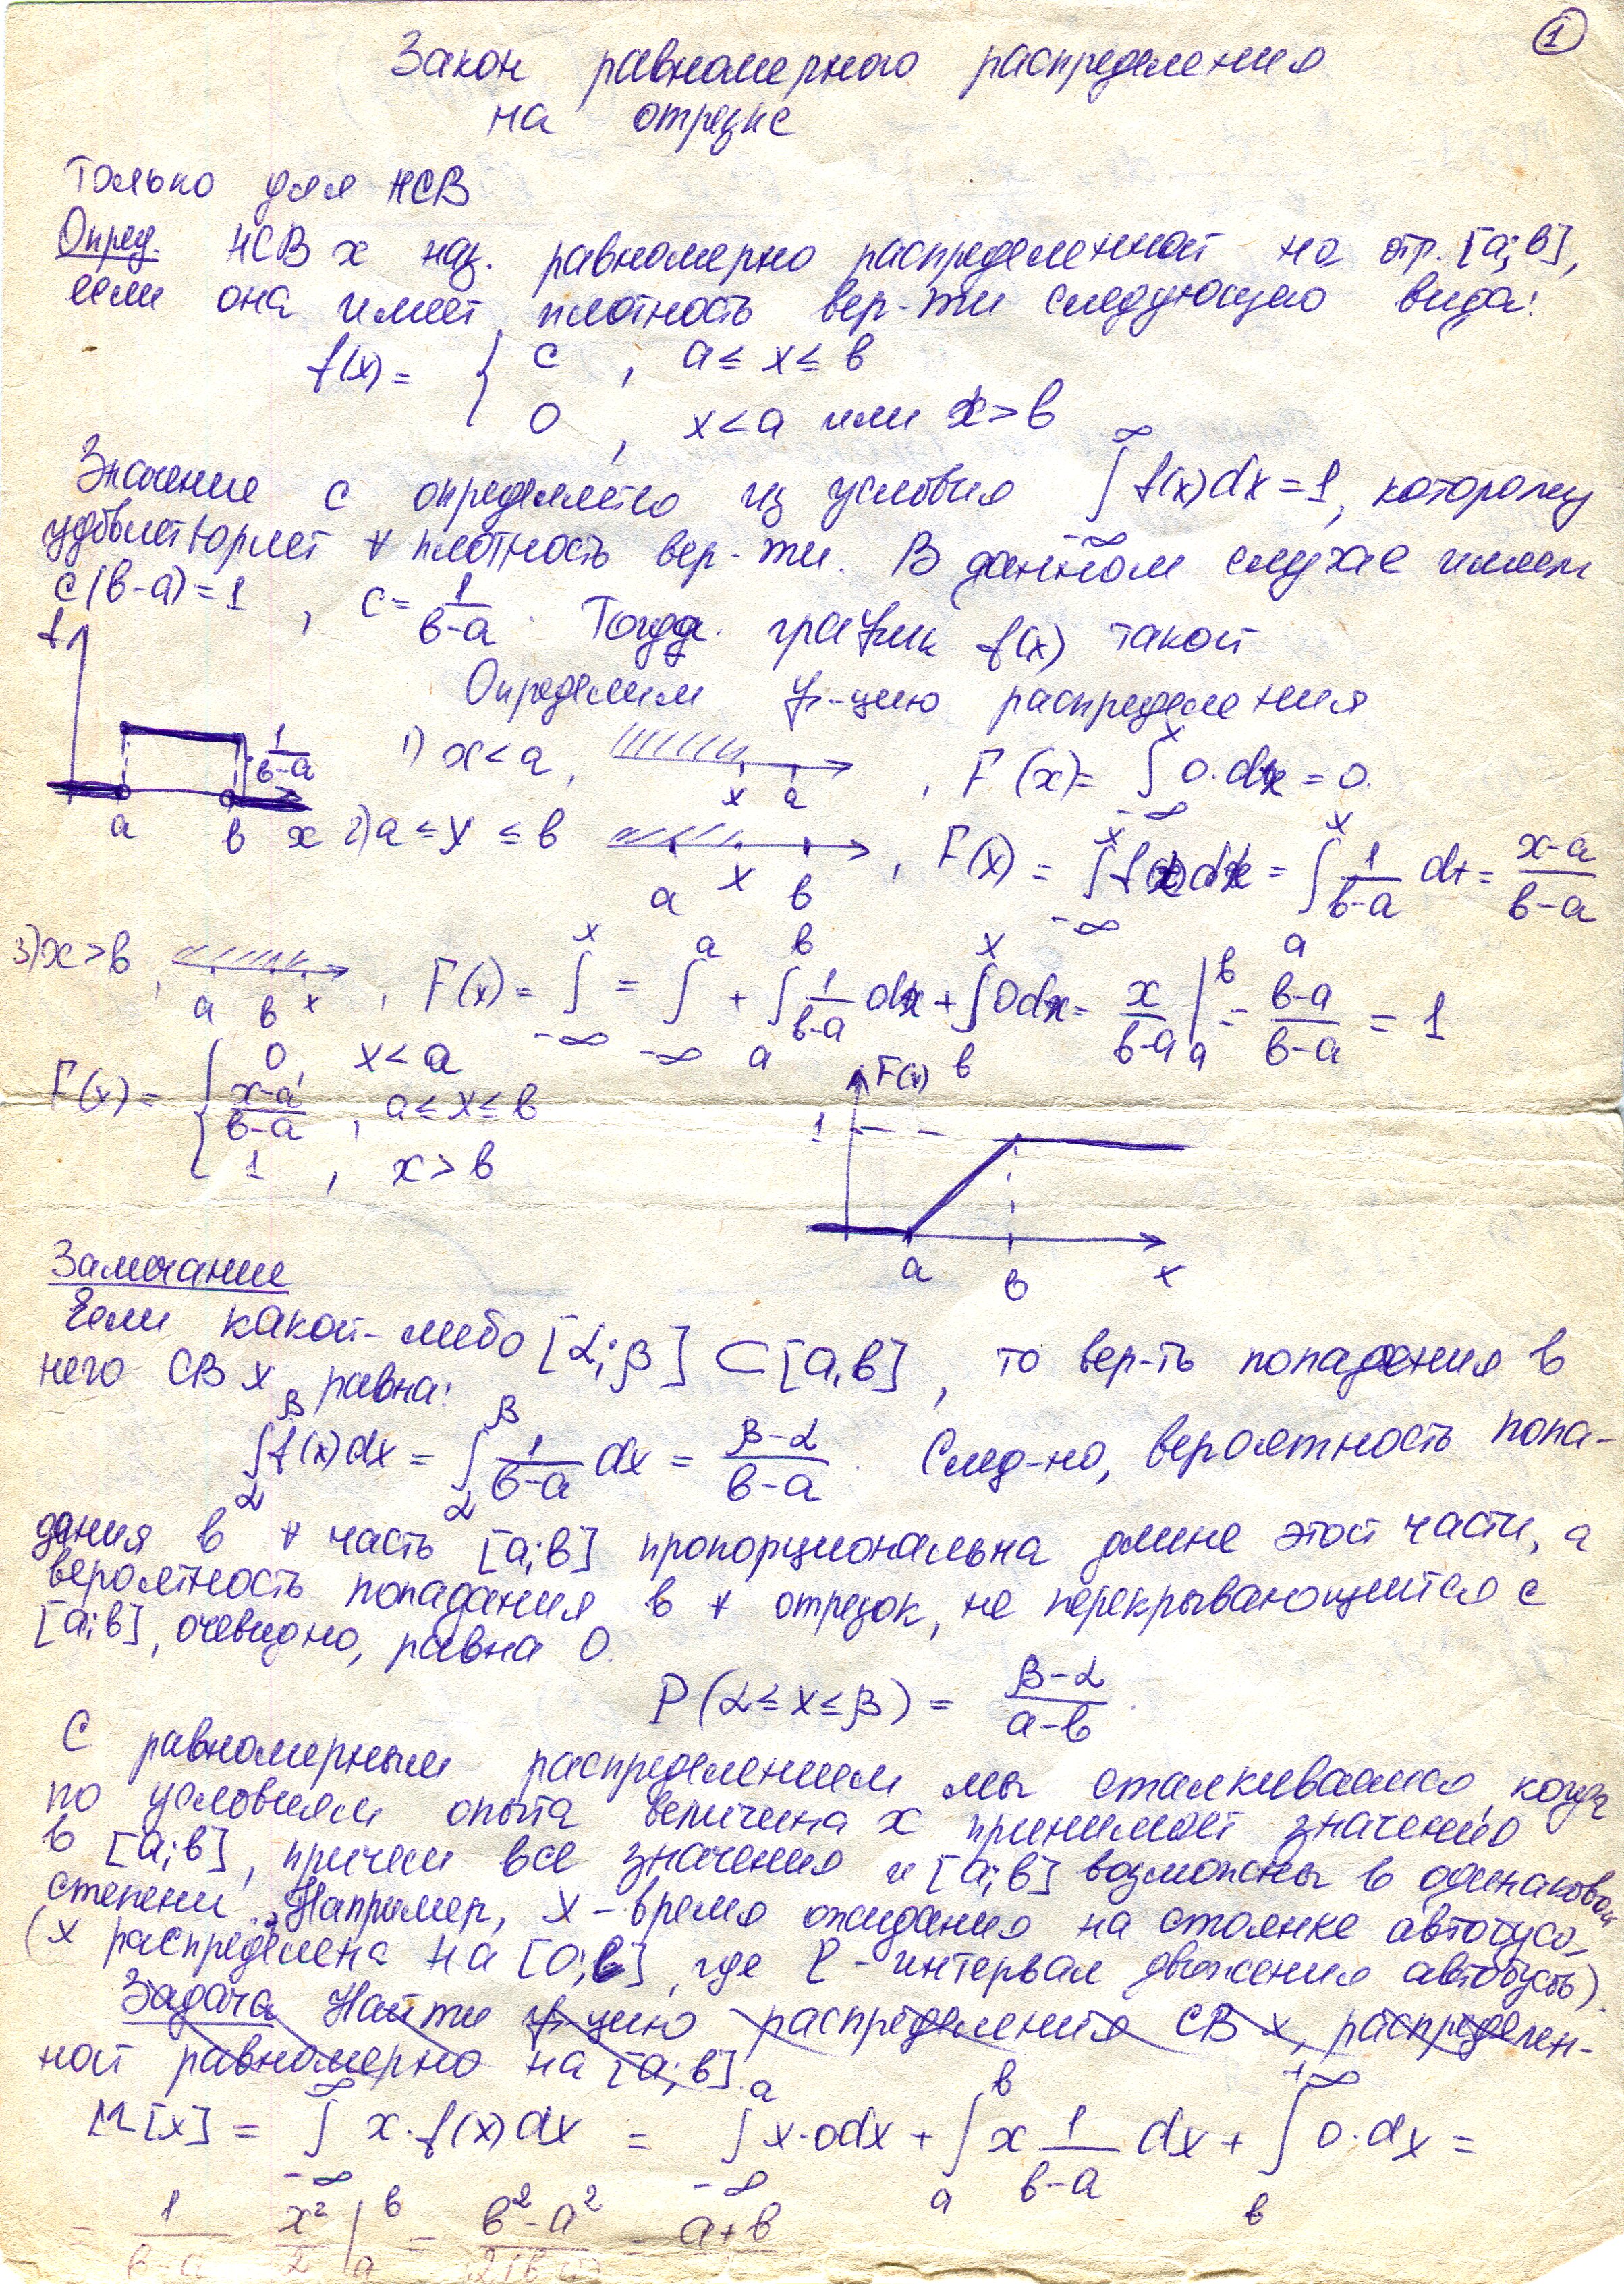 1
Закон равномерного распределения
на отрезке
Только для НСВ
Опред. НСВ x наз. равномерно распределенной на отр. [a;b],
если она имеет плотность вер-ти следующего вида:
f(x) = { c , a ≤ x ≤ b
0 , x < a или x > b
Значение c определяется из условия ∫_{-∞}^{∞} f(x)dx = 1, которому
удовлетворяет ∀ плотность вер-ти. В данном случае имеем
c(b-a) = 1 , c = 1/(b-a) . Тогда график f(x) такой
f
Определим ф-цию распределения
1/(b-a)
a b x
1) x < a , x a , F(x) = ∫_{-∞}^{x} 0·dx = 0.
2) a ≤ x ≤ b a x b , F(x) = ∫_{-∞}^{x} f(x)dx = ∫_{a}^{x} 1/(b-a) dt = (x-a)/(b-a)
3) x > b , a b x , F(x) = ∫_{-∞}^{x} = ∫_{-∞}^{a} + ∫_{a}^{b} 1/(b-a) dx + ∫_{b}^{x} 0dx = x/(b-a) |_{a}^{b} = (b-a)/(b-a) = 1
F(x) = { 0, x < a
(x-a)/(b-a) , a ≤ x ≤ b
1 , x > b
F(x)
1
a b x
Замечание
Если какой-либо [α;β] ⊂ [a,b] , то вер-ть попадения в
него СВ x равна:
∫_{α}^{β} f(x)dx = ∫_{α}^{β} 1/(b-a) dx = (β-α)/(b-a) . След-но, вероятность попа-
дания в ∀ часть [a;b] пропорциональна длине этой части, а
вероятность попадания в ∀ отрезок, не перекрывающийся с
[a;b], очевидно, равна 0.
P(α ≤ x ≤ β) = (β-α)/(a-b) .
С равномерным распределением мы сталкиваемся, когда
по условиям опыта величина x принимает значения
в [a;b], причем все значения и [a;b] возможны в одинаковой
степени. Например, x - время ожидания на стоянке автобуса,
(x распределена на [0;l], где l - интервал движения автобусов).
Задача Найти ф-цию распределения СВ x, распределен-
ной равномерно на [a;b].
M[x] = ∫_{-∞}^{∞} x·f(x)dx = ∫_{-∞}^{a} x·0dx + ∫_{a}^{b} x 1/(b-a) dx + ∫_{b}^{+∞} 0·dx =
= 1/(b-a) x²/2 |_{a}^{b} = (b²-a²)/2(b-a) = a+b